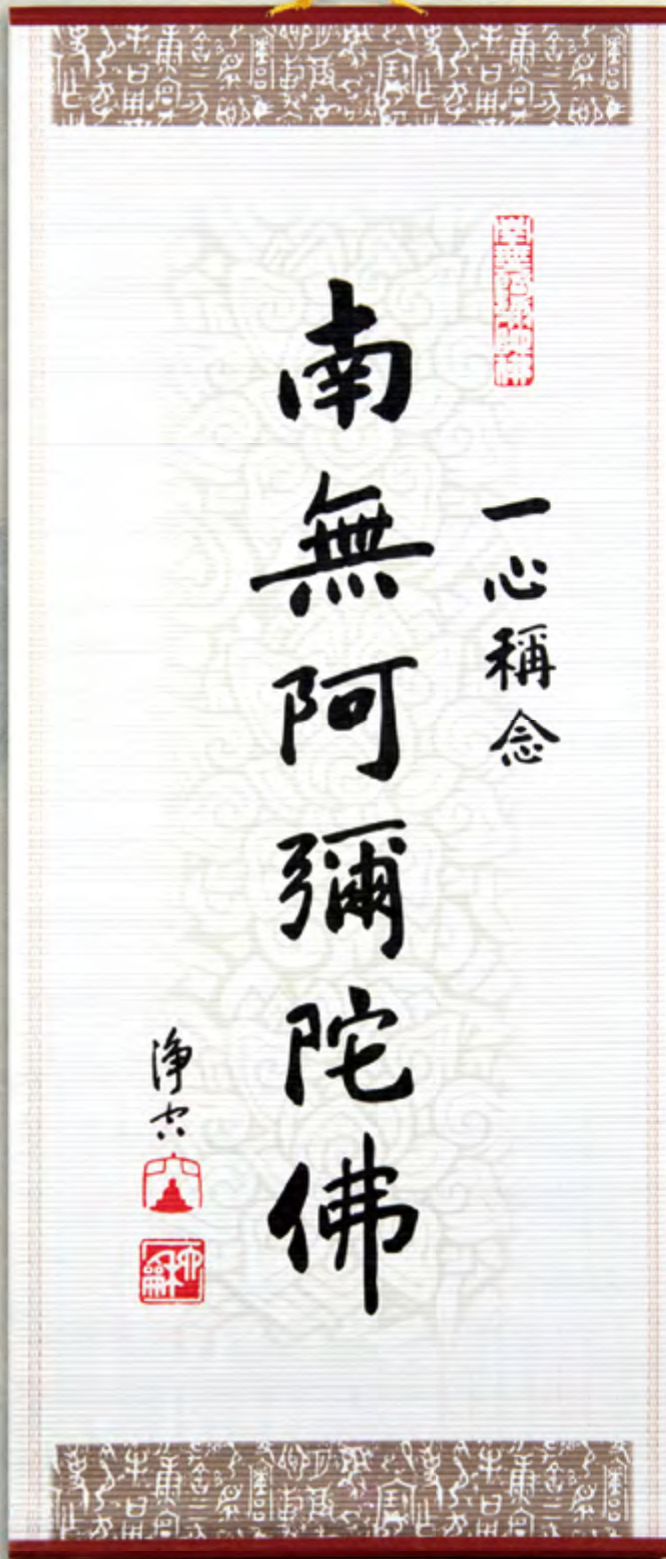 一心稱念
南無阿彌陀佛
淨空